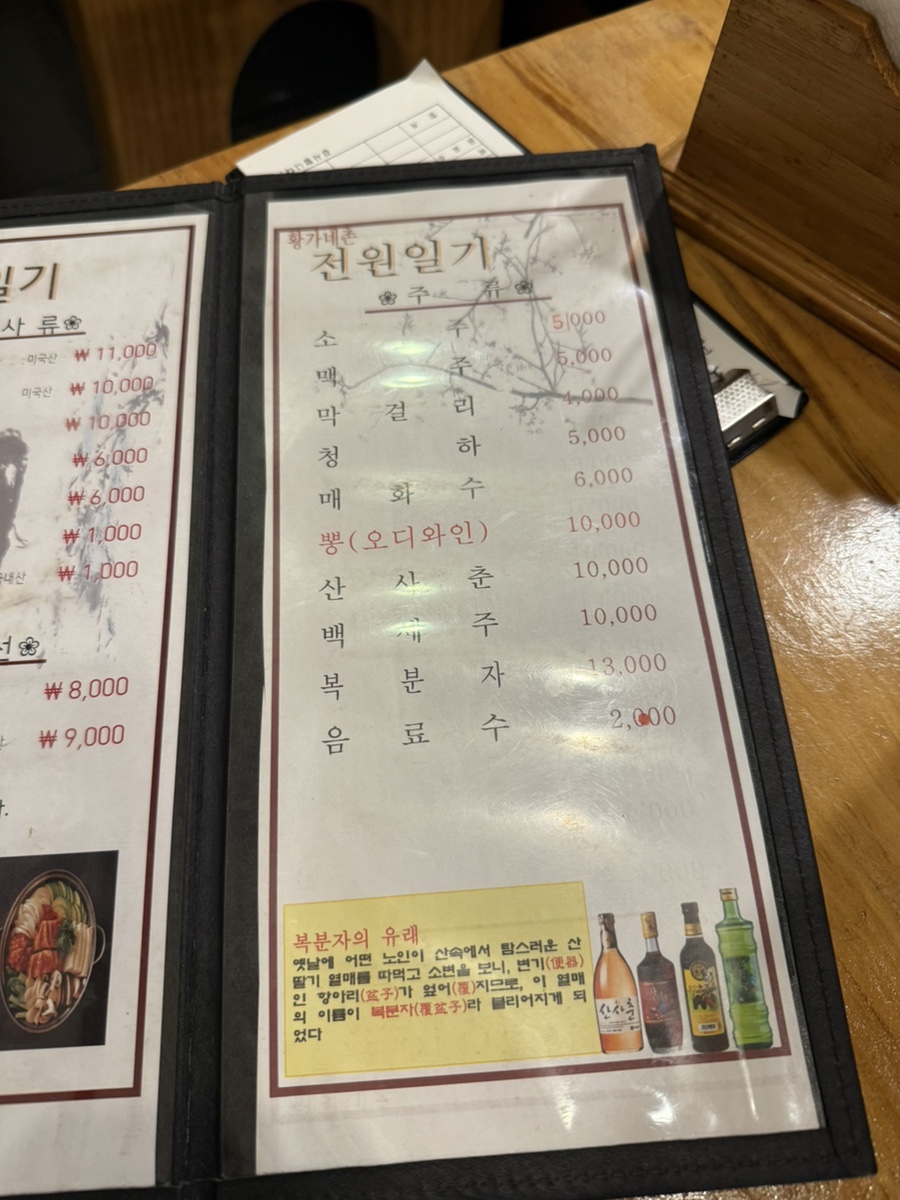 일기
사 류
미국산 ₩ 11,000
미국산 ₩ 10,000
₩ 10,000
₩ 6,000
₩ 6,000
₩ 1,000
내산 ₩ 1,000
선
₩ 8,000
₩ 9,000
황가네촌
전원일기
주 류
소 주 5,000
맥 주 5,000
막 걸 리 4,000
청 하 5,000
매 화 수 6,000
뽕(오디와인) 10,000
산 사 춘 10,000
백 세 주 10,000
복 분 자 13,000
음 료 수 2,000
복분자의 유래
옛날에 어떤 노인이 산속에서 탐스러운 산
딸기 열매를 따먹고 소변을 보니, 변기(便器)
인 항아리(盆子)가 엎어(覆)지므로, 이 열매
의 이름이 복분자(覆盆子)라 불리어지게 되
었다
산사춘